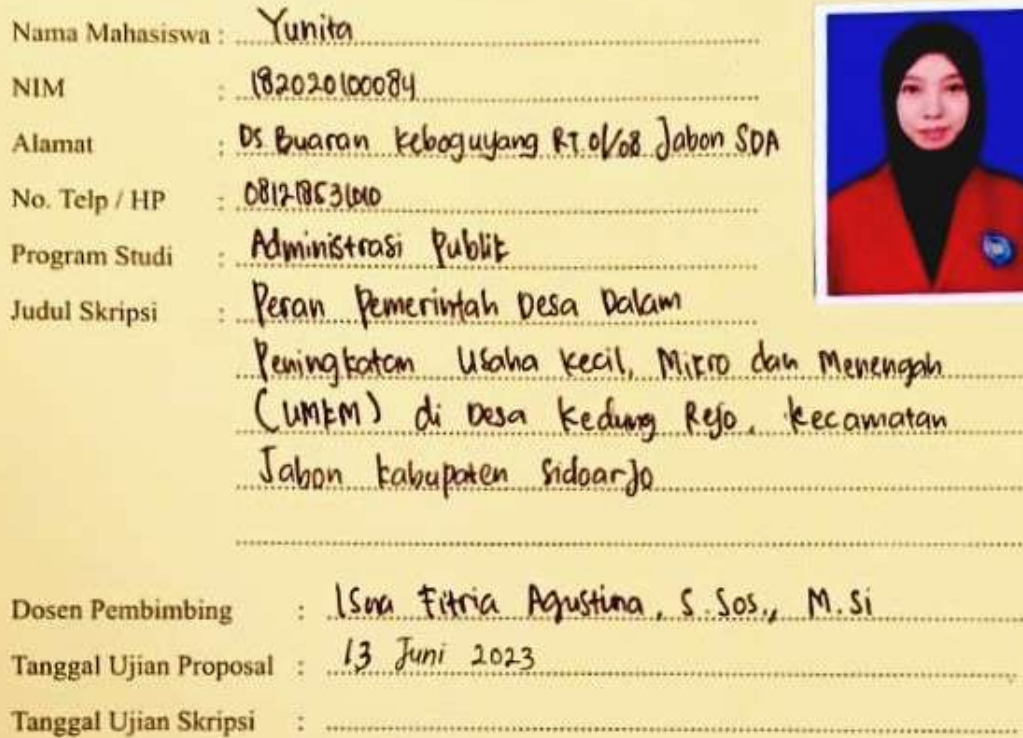 Nama Mahasiswa : Yunita
NIM : 182020100084
Alamat : Ds Buaran Keboguyang RT 01/08 Jabon SDA
No. Telp / HP :
Program Studi : Administrasi Publik
Judul Skripsi : Peran Pemerintah Desa Dalam
Peningkatan Usaha Kecil, Mikro dan Menengah
(UMKM) di Desa Kedung Rejo, Kecamatan
Jabon Kabupaten Sidoarjo
Dosen Pembimbing : Isna Fitria Agustina, S.Sos., M.Si
Tanggal Ujian Proposal : 13 Juni 2023
Tanggal Ujian Skripsi :